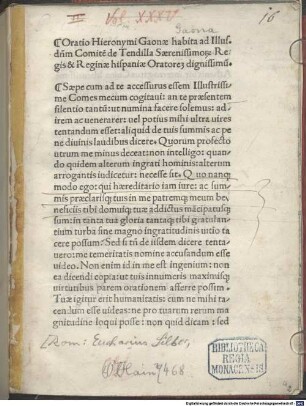 II Vol. XXXV
16
Gaona
¶Oratio Hieronymi Gaonæ habita ad Illus-
dñm Comitē de Tendilla Særenissimoꝝ Re-
gis & Reginæ hispaniæ Oratorē dignissimū.
¶Sæpe cum ad te accessurus essem Illustrissi-
me Comes mecum cogitaui: an te præsentem
silentio tantū: ut numina facere solemus: ad-
irem ac uenerarer: uel potius mihi ultra uires
tentandum esset: aliquid de tuis summis ac pe
ne diuinis laudibus dicere. Quorum profecto
utrum me minus deceat: non intelligo: quan-
do quidem alterum ingrati hominis: alterum
arrogantis iudicetur: necesse sit. Quo nanq
modo ego: qui hæreditario iam iure: ac sum-
mis præclarisq tuis in me patremq meum be-
neficiis tibi domuiq tuæ addictus mācipatusq
sum: in tanta tua gloria: tantaq tibi gratulan-
tium turba sine magno ingratitudinis uitio ta
cere possum? Sed si tñ de iisdem dicere tenta-
uero: me temeritatis nomine accusandum esse
uideo. Non enim id in me est ingenium: non
ea dicendi copia: ut tuis innumeris maximisq
uirtutibus parem orationem afferre possim.
Tuæ igitur erit humanitatis: cum me mihi ta-
cendum esse uideas: ne pro tuarum rerum ma
gnitudine loqui posse: non quid dicam: sed
[Rom: Eucharius Silber,
Hain 7468
BIBLIOTHECA
REGIA
MONACENSIS